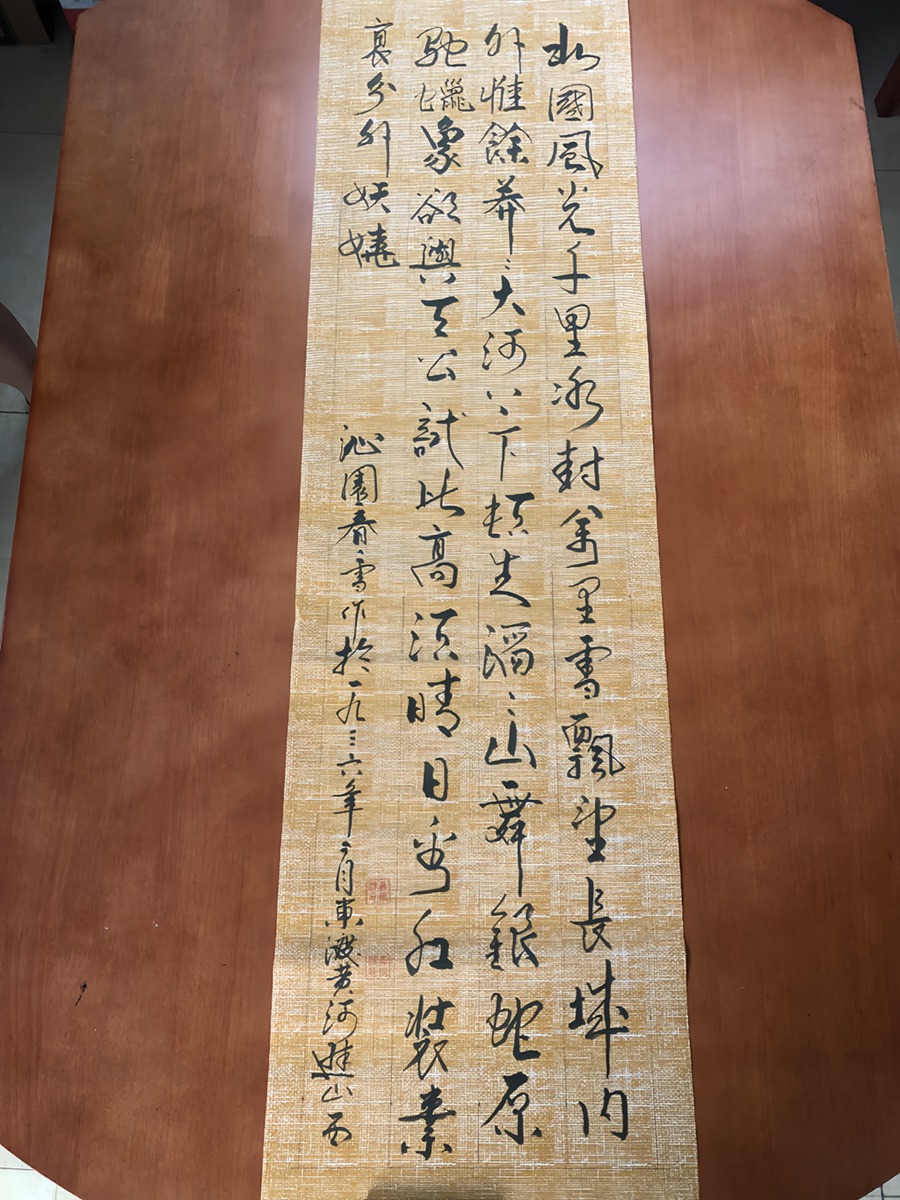 北國風光千里冰封萬里雪飄望長城内
外惟餘莽〻大河上下頓失滔〻山舞銀蛇原
馳蠟象欲與天公試比高須晴日看紅裝素
裹分外妖嬈
沁園春雪作於一九三六年二月東渡黄河進山西